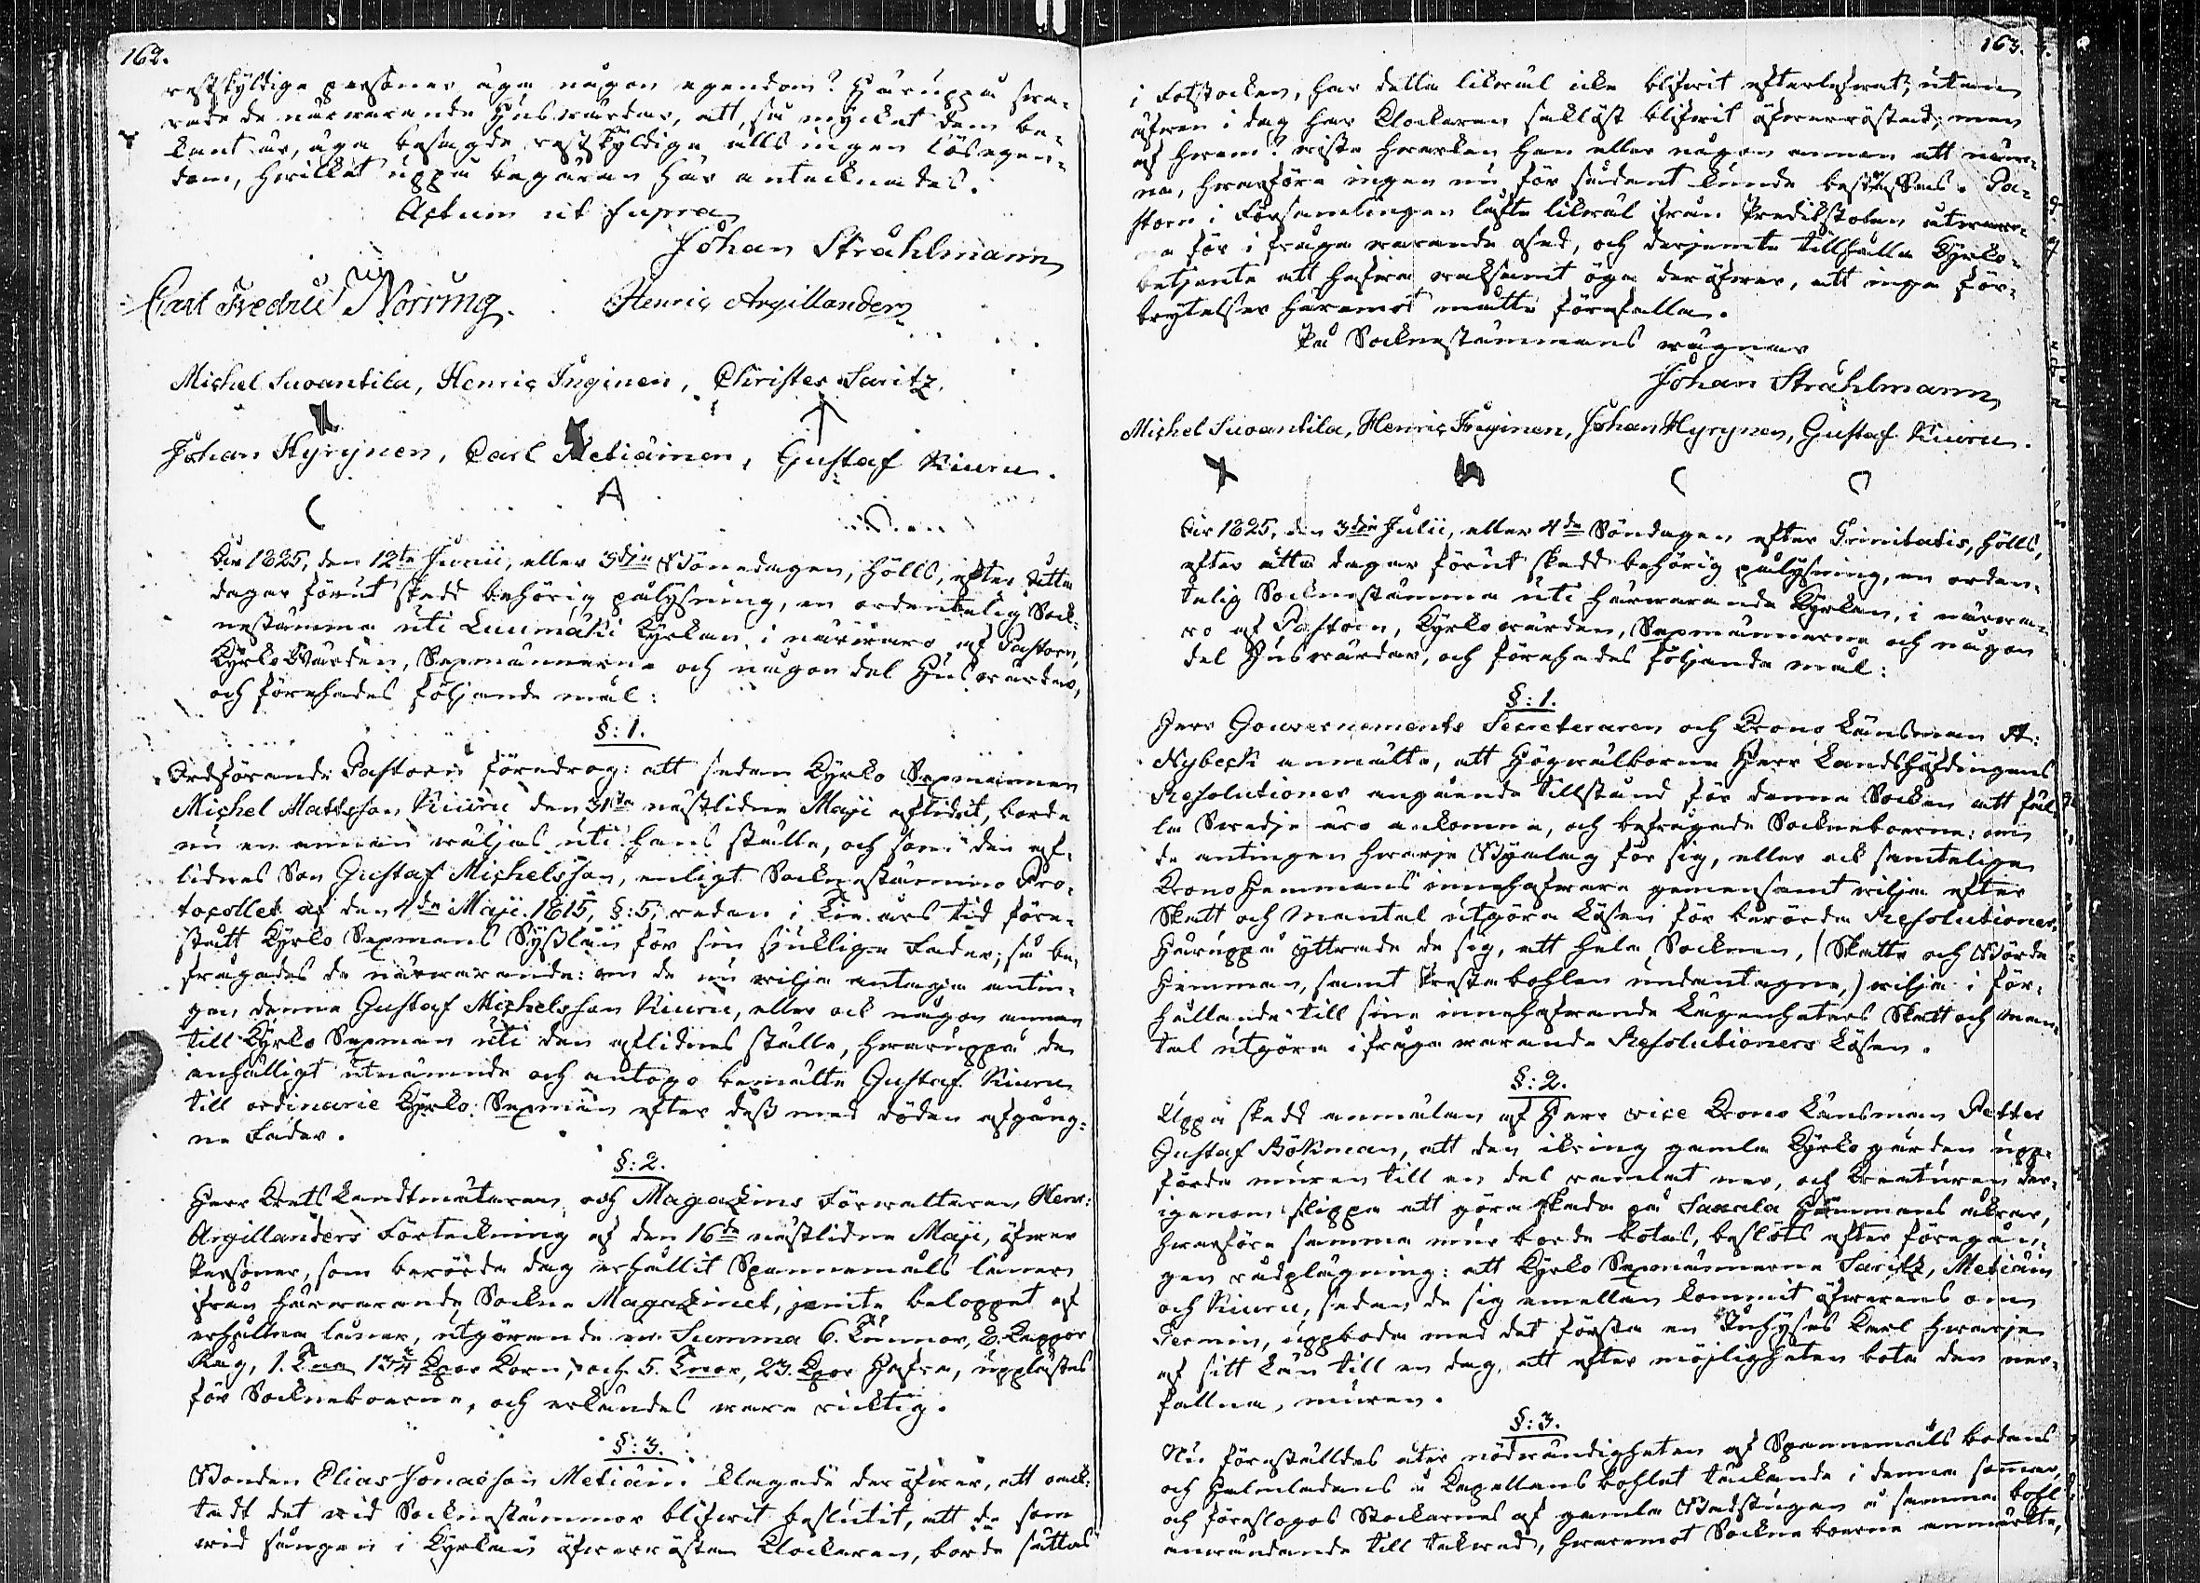 162.
restskyldige personer äga någon egendom? Häruppå swa-
rade de närwarande Huswärdar, att, så mycket dem be-
kant är, äga besagde restskyldige alls ingen lösegen-
dom, hwilket uppå begäran här antecknades.
Actum ut supra
Johan Stråhlmann
Carl Fredric Norring. Henric Argillander
Michel Suoantila, Henric Inginen, Christer Saritz,
Johan Hyrynen, Carl Metiäinen, Gustaf Kiuru.
År 1825, den 12te Junii, eller 3dje Böne dagen, hölls, efter åtta
dagar förut skedd behörig pålysning, en ordentelig Sock-
nestämma uti Luumäki Kyrkan i närwaro af Pastorn,
Kyrko Wärden, Sexmännerne och någon del Huswärdar,
och förehades följande mål:
§: 1.
Ordförande Pastorn föredrog: att sedan Kyrko Sexmannen
Michel Mattsson Kiuru den 31sta nästlidne Maji aflidit, borde
nu en annan wäljas uti hans ställe, och som den af-
lidnes Son Gustaf Michelsson, enligt Sockenstämmo Pro-
tocollet af den 4de Maji 1815, §: 5, redan i tie års tid före-
stått Kyrko Sexmans Sysslan för sin sjuklige Fader; så be-
frågades de närwarande: om de nu wilja antaga antin-
gen denne Gustaf Michelsson Kiuru, eller ock någon annan
till Kyrko Sexman uti den aflidnes ställe, hwaruppå de
enhälligt utnämnde och antogo bemälte Gustaf Kiuru
till ordinarie Kyrko Sexman efter dess med döden afgång-
ne Fader.
§: 2.
Herr Kretslandtmätaren och Magazins Förwaltaren Henr:
Argillanders Förteckning af den 16de nästlidne Maji, öfwer
Personer, som berörde dag erhållit Spannemåls lånen
ifrån härwarande Sockne Magazinet, jemte beloppet af
erhållne lånen, utgörande en Summa 6. Tunnor, 2. Kappor
Råg, 1. Tna 13¾ Kpor Korn, och 5. Tnor, 23. Kpor Hafra, upplästes
för Sockneboerne, och erkändes wara riktig.
§: 3.
Bonden Elias Jonasson Metiäin klagade deröfwer, att oack-
tadt det wid Socknestämmor blifwit beslutit, att de som
wid sången i Kyrkan öfwerrösta Klockaren, borde sättas
163.
i Fotstocken, har detta likwäl icke blifwit efterlefwat; utan
äfwen i dag har Klockaren sakläst blifwit öfwerröstad; men
af hwem? wiste hwarken han eller någon annan att näm-
na, hwarföre ingen nu för sådant kunde bestraffas. Pa-
storn i Församlingen lofte likwäl ifrån Predikstolen utwar-
na för i fråga warande ofed, och derjemte tillhålla Kyrko-
betjente att hafwa waksamt öga deröfwer, att inga för-
brytelser häremot måtte förefalla.
På Socknestämmans wägnar
Johan Stråhlmann
Michel Suoantila, Henric Inginen, Johan Hyrynen, Gustaf Kiuru.
År 1825, den 3dje Julii, eller 4de Söndagen efter Trinitatis, hölls,
efter åtta dagar förut skedd behörig pålysning, en orden-
telig Socknestämma uti härwarande Kyrkan, i närwa-
ro af Pastorn, Kyrkowärden, Sexmännerne och någon
del Huswärdar, och förehades följande mål:
§: 1.
Herr Gouvernements Secreteraren och Krono Länsman A:
Nybeck anmälte, att Högwälborne Herr Landshöfdingens
Resolutioner angående tillstånd för denne Socken att fäl-
la Swedje äro ankomne, och befrågade Sockneboerne: om
de antingen hwarje Byalag för sig, eller ock samtelige
Krono Hemmans innehafware gemensamt wilja efter
Skatt och Mantal utgöra Lösen för berörde Resolutioner.
Häruppå yttrade de sig, att hela Socknen, (Skatte och Börde
Hemman, samt Preste bohlen undantagne,) wilja i för-
hållande till sine innehafwande Lägenheters Skatt och Man-
tal utgöra ifråga warande Resolutioners Lösen.
§: 2.
Uppå skedd anmälan af Herr vice Krono Länsman Petter
Gustaf Bökman, att den ikring gamla Kyrkogården upp-
förde muren till en del ramlat ner, och Kreaturen der-
igenom slippa att göra skada på Saxala Hemmans åkrar,
hwarföre samma mur borde botas, beslöts efter föregån-
gen rådplägning: att Kyrko Sexmännerne Saritz, Metiäin
och Kiuru, sedan de sig emellan kommit öfwerens om
Termin, uppbåda med det första en Ruhyses karl hwarje
af sitt Län till en dag, att efter möjligheten bota den ner-
fallna, muren.
§: 3.
Nu föreställdes åter nödwändigheten af Spannemåls bodens
och Halmladans å Capellans bohlet täckande i denne sommar,
och föreslogos Stockarnes af gamla Badstugan å samma bohl
anwändande till takwed, hwaremot Sockne boerne anmärkte,